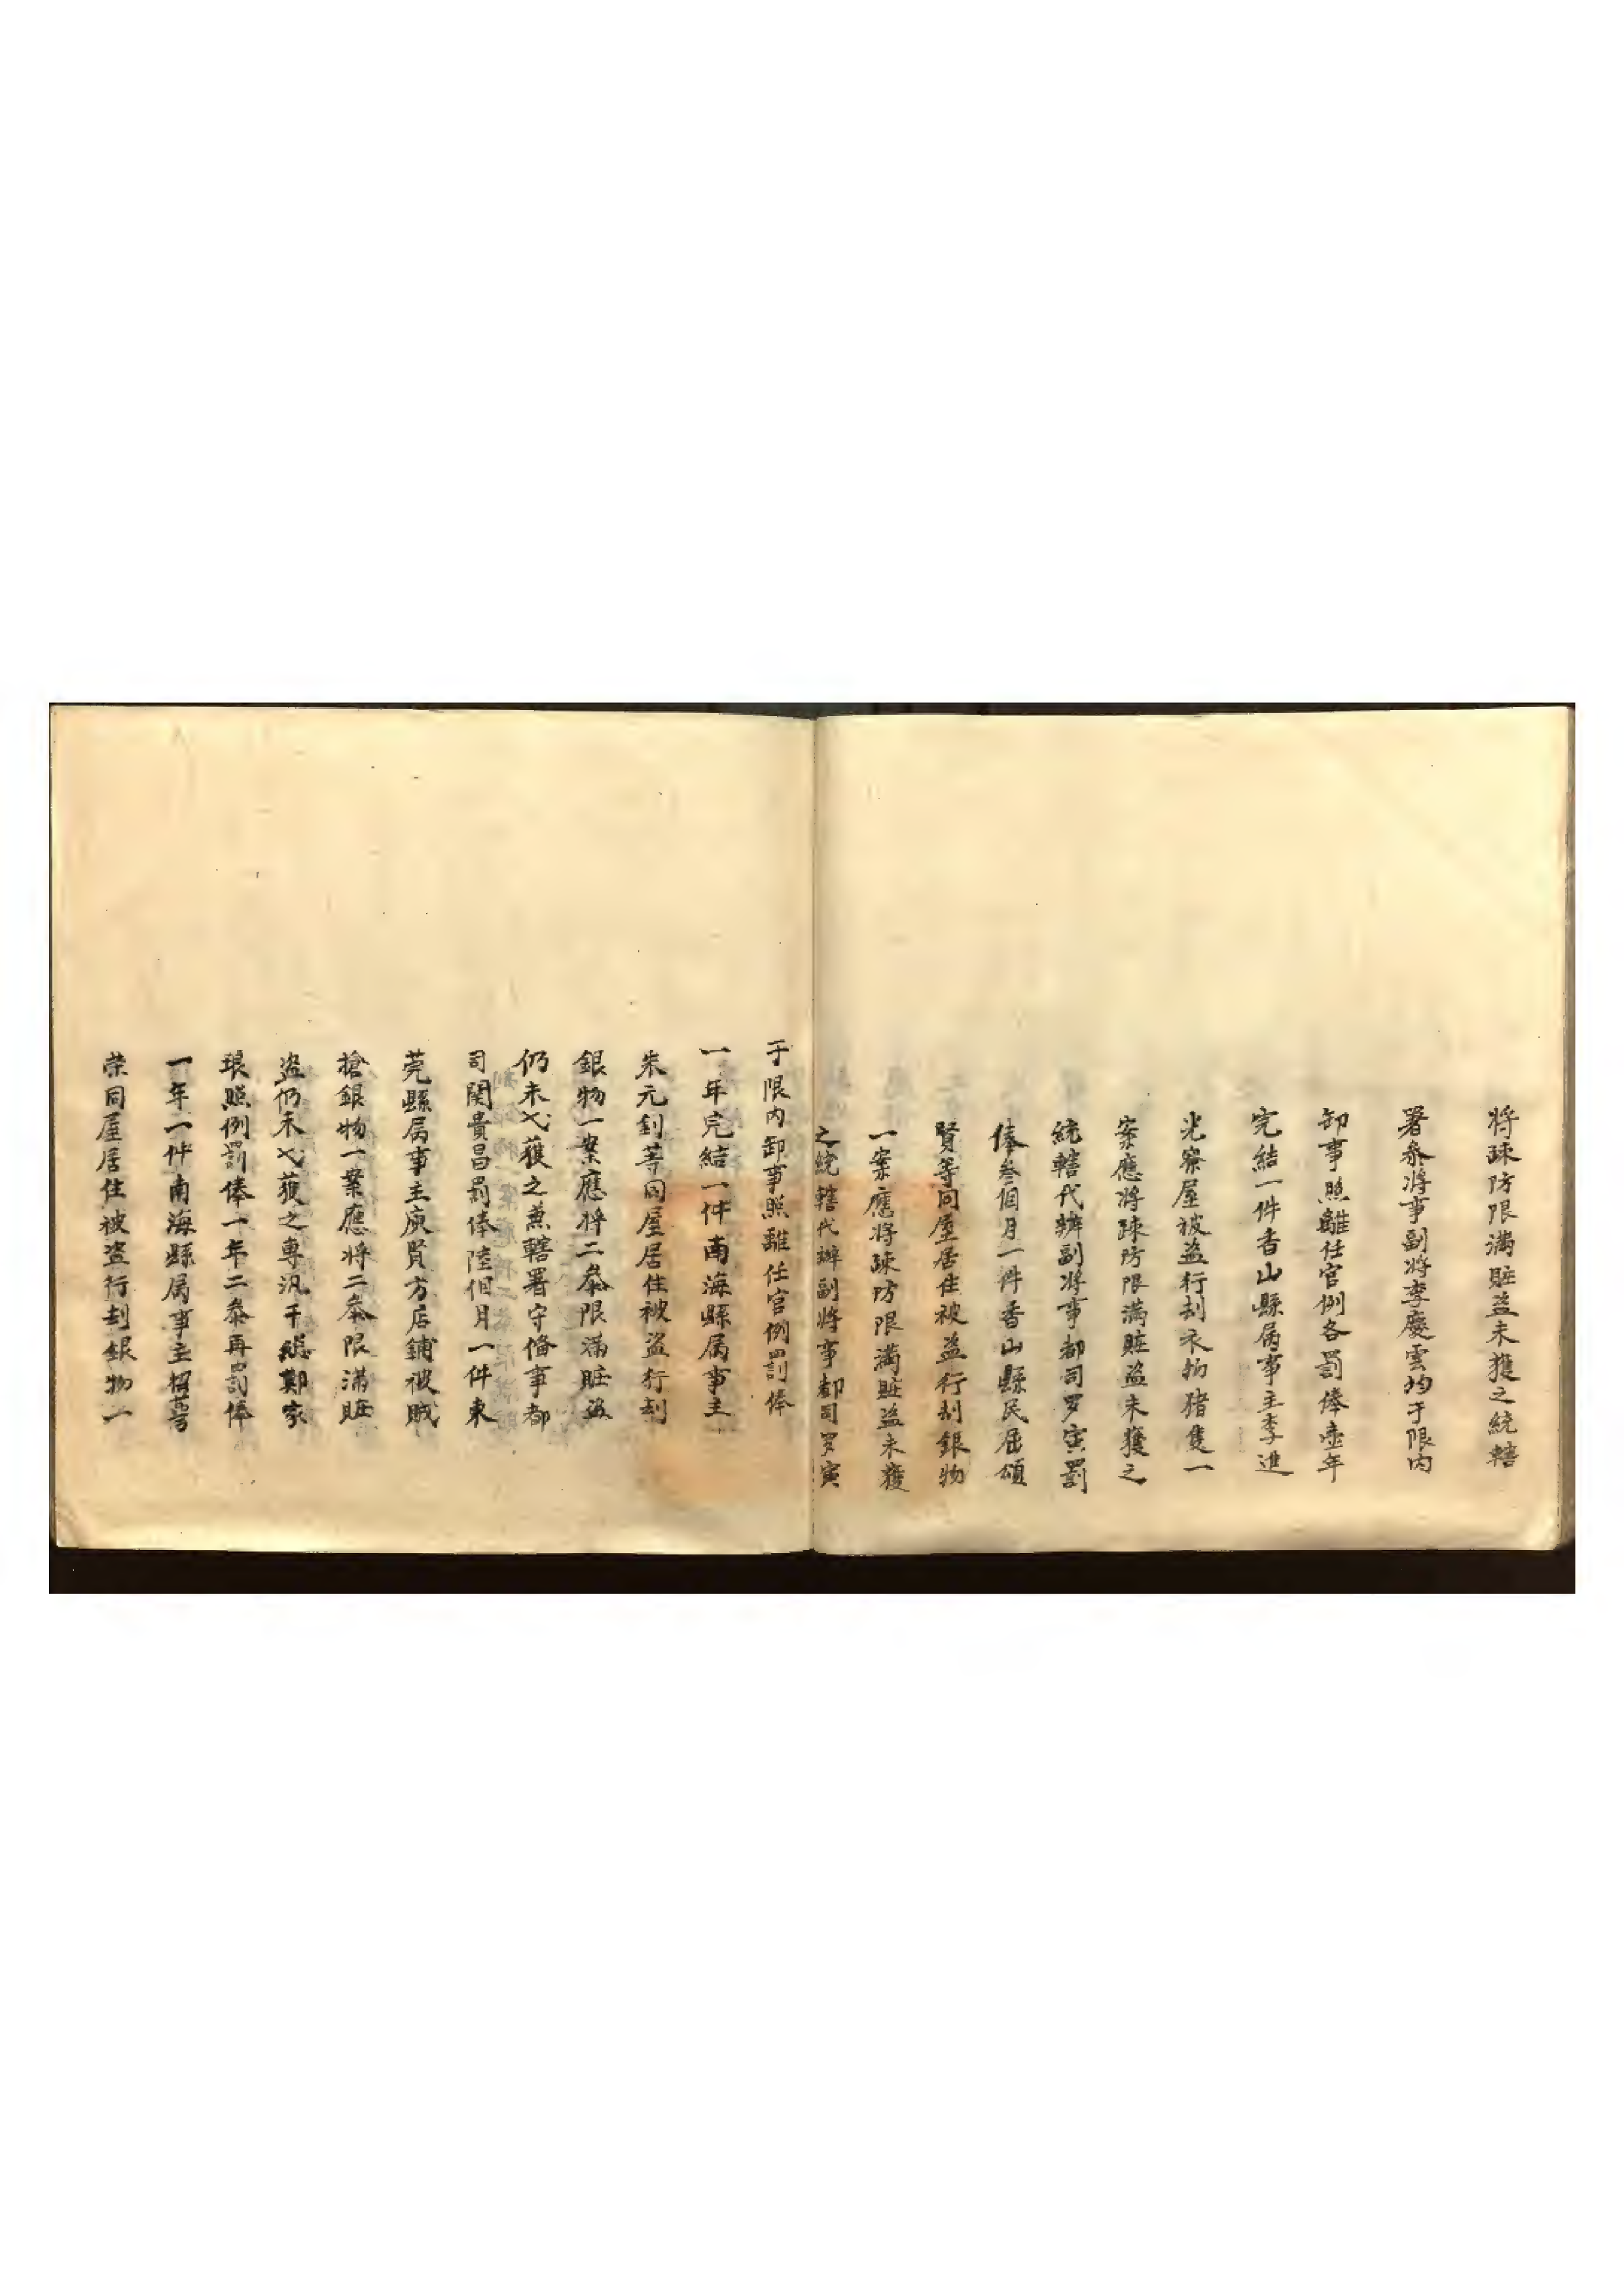 将疎防限満賍盗未獲之統轄
署叅将事副将李慶雲均于限内
卸事照離任官例各罰俸壷年
完結一件香山縣属事主李進
光寮屋被盗行刦衣物猪隻一
案應将疎防限満賍盗未獲之
統轄代辦副将事都司罗寅罰
俸叁個月一件香山縣民屈頌
賢等同屋居住被盗行刦銀物
一案應将疎防限満賍盗未獲
之統轄代辦副将事都司罗寅
于限内卸事照離任官例罰俸
一年完結一件南海縣属事主
朱元釗等同屋居住被盗行刦
銀物一案應将二叅限満賍盗
仍未弋獲之兼轄署守俻事都
司関貴昌罰俸陸個月一件東
莞縣属事主庾賢方店鋪被賊
搶銀物一案應将二叅限満賍
盗仍未弋獲之專汛千總鄭家
琅照例罰俸一年二叅再罰俸
一年一件南海縣属事主招萼
荣同屋居住被盗行刦銀物一